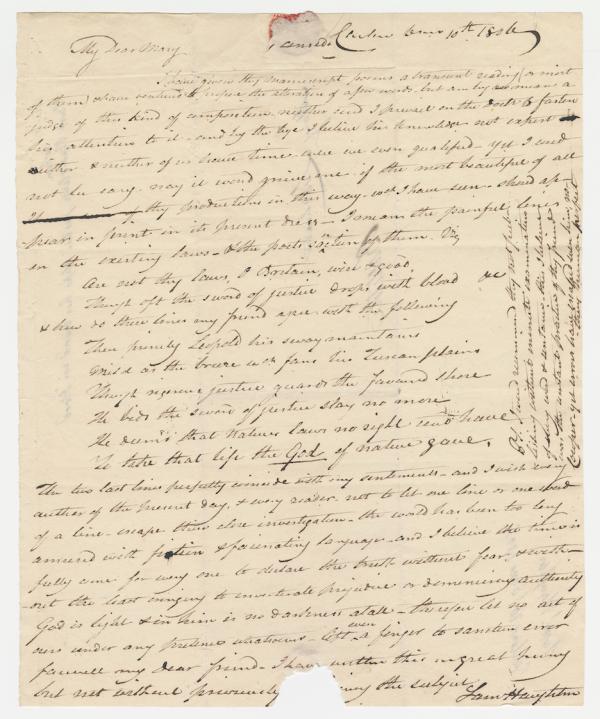 My Dear Mary
Carlow 10th 1806
I have given thy manuscript poems a transient reading (or most
of them) & have ventured to propose the alteration of a few words. but am by no means a
judge of this kind of composition neither could I prevail on the doctor to fasten
his attention to it and by the bye I believe his knowledge not expert
either & neither of us have time were we even qualified - yet I could
not be easy. nay it would grieve me if the most beautiful of all
thy productions in this way wch I have seen - should ap-
pear in print in its present dress - I mean the painful lines
on the existing laws - & the poets of them. Viz
Are not thy laws, O Britain, wise & good,
Though oft the sword of justice drops with blood &c
& how do these lines my friend agree with the following
Then princely Leopold his sway maintains
Mild as the breeze wch fans his Tuscan plains
Though rigorous justice guards the favour'd shore
He bids the sword of justice slay no more
He deem'd that Natures laws no right could have
To take that life the God of nature gave.
The two last lines perfectly coincide with my sentiments - and I wish every
author of the present day, & every reader not to let one line or one word
of a line - escape their close investigation - the world has been too long
amused with fiction & fascinating language - and I believe the time is
fully come for every one to declare the truth without fear. & with-
out the least cringing to inveterate prejudice or domineering authority
God is light & in him is no darkness at all - therefore let no act of
ours under any pretence whatsoever - lift even a finger to sanction error
farewell my dear friend - I have written this in great hurry
but not without previously the subject
Sam Haughton
PS. I would recommend thy not
without examination
of thy friend
Cowper - yet